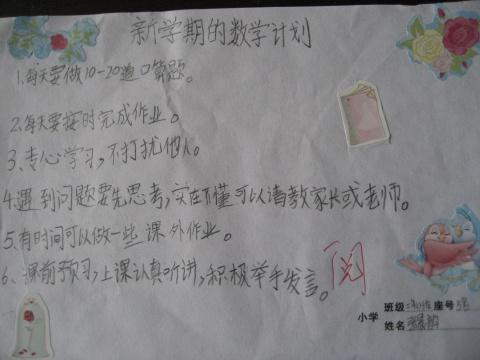 新学期的数学计划
1、每天要做10-20道口算题。
2、每天要按时完成作业。
3、专心学习,不打扰他人。
4、遇到问题要先思考,实在不懂可以请教家长或老师。
5、有时间可以做一些课外作业。
6、课前预习,上课认真听讲,积极举手发言。
阅
小学 班级 座号
姓名